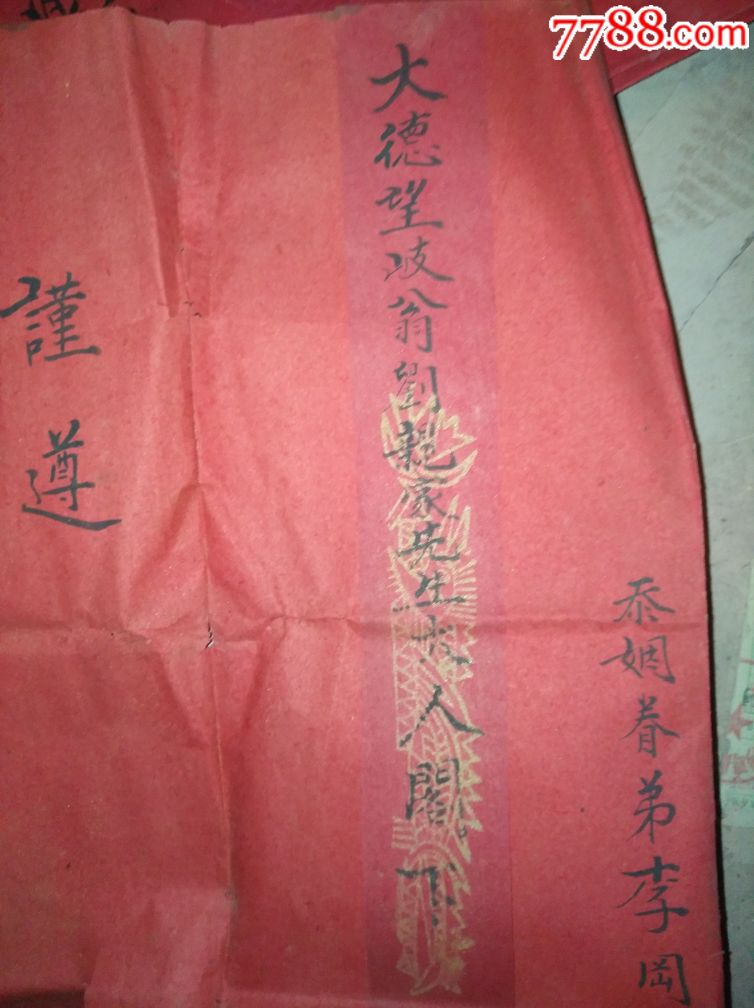 7788.com
忝姻眷弟李岡
大德望岐翁劉親家先生大人閣下
謹遵